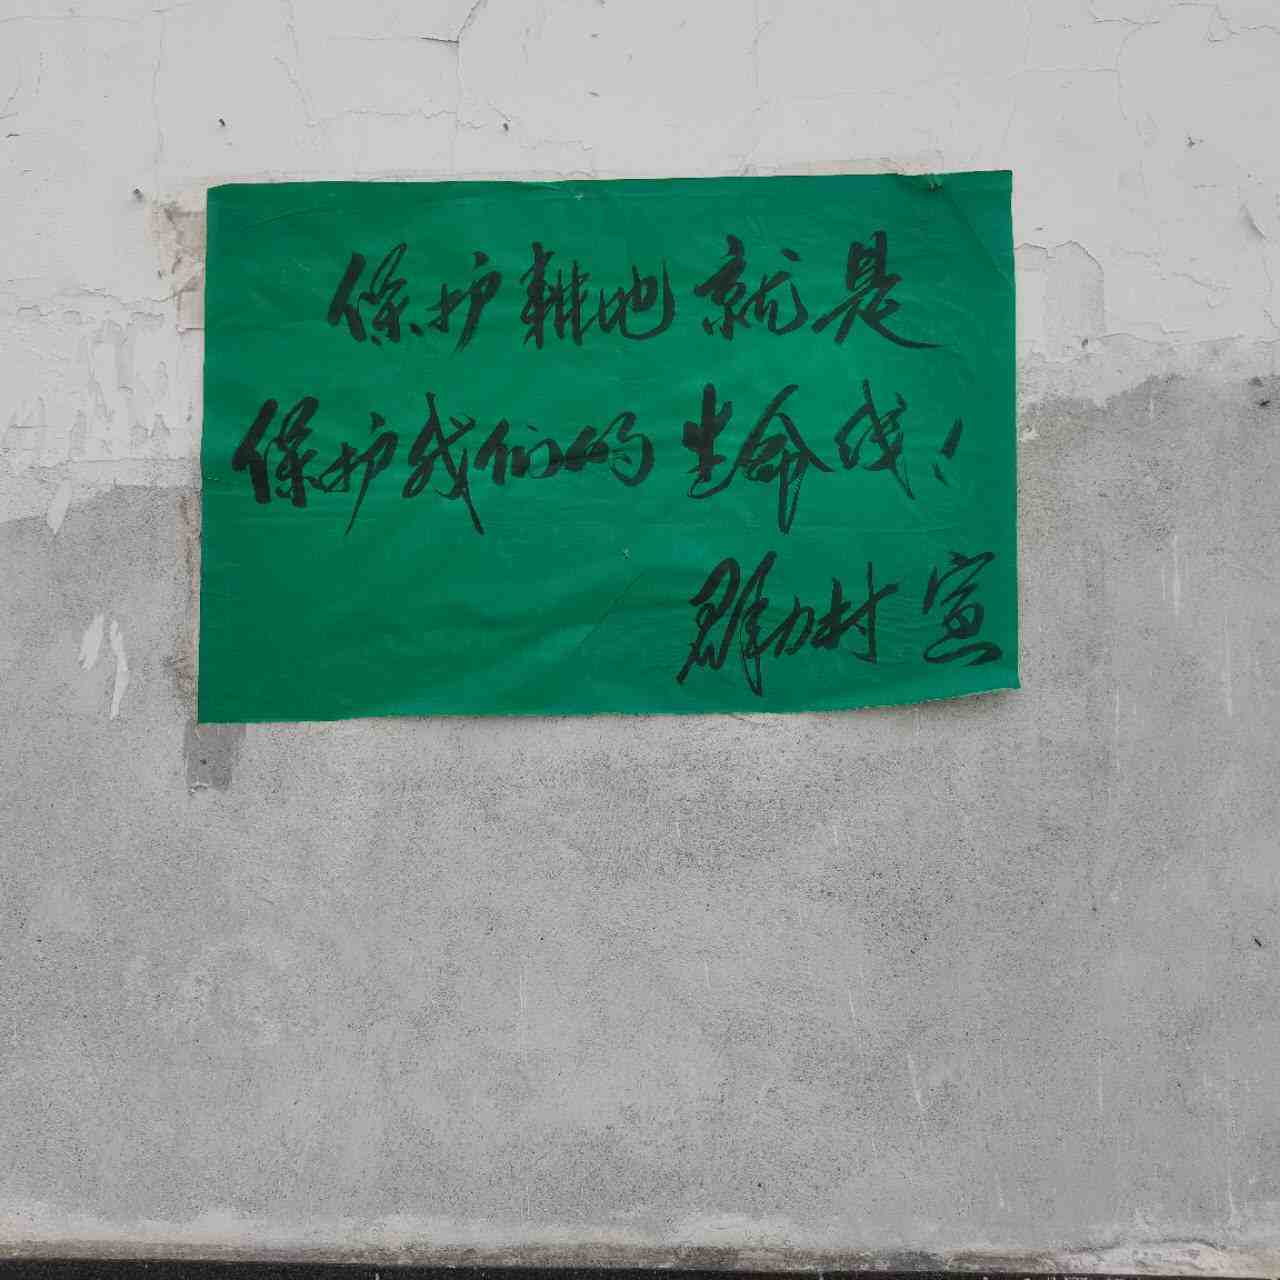 保护耕地就是
保护我们的生命线！
群力村宣